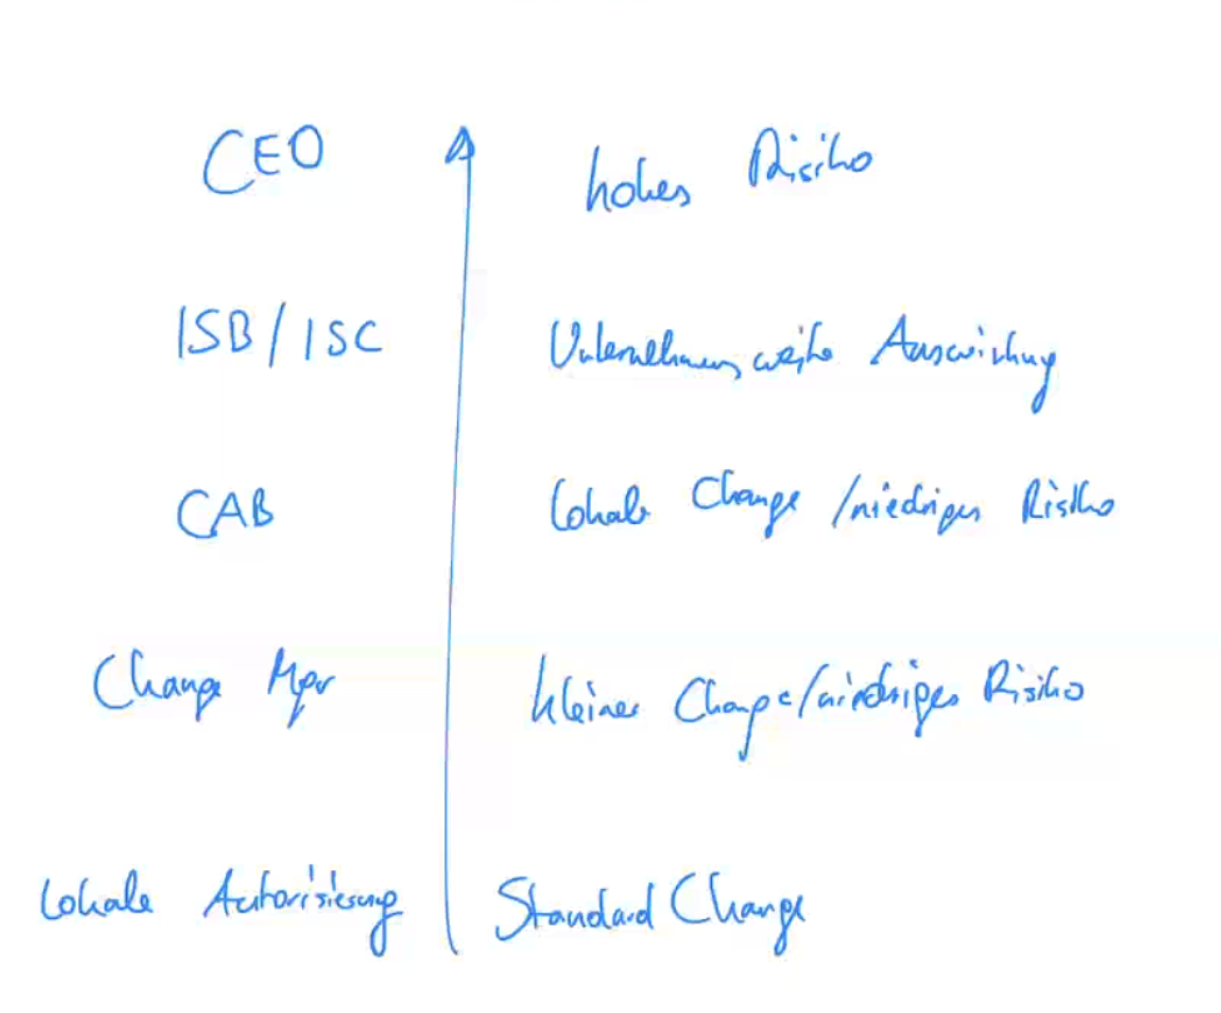 CEO hohes Risiko
ISB/ISC Unternehmensweite Auswirkung
CAB lokale Change /niedriges Risiko
Change Mgr kleiner Change/niedriges Risiko
lokale Autorisierung Standard Change